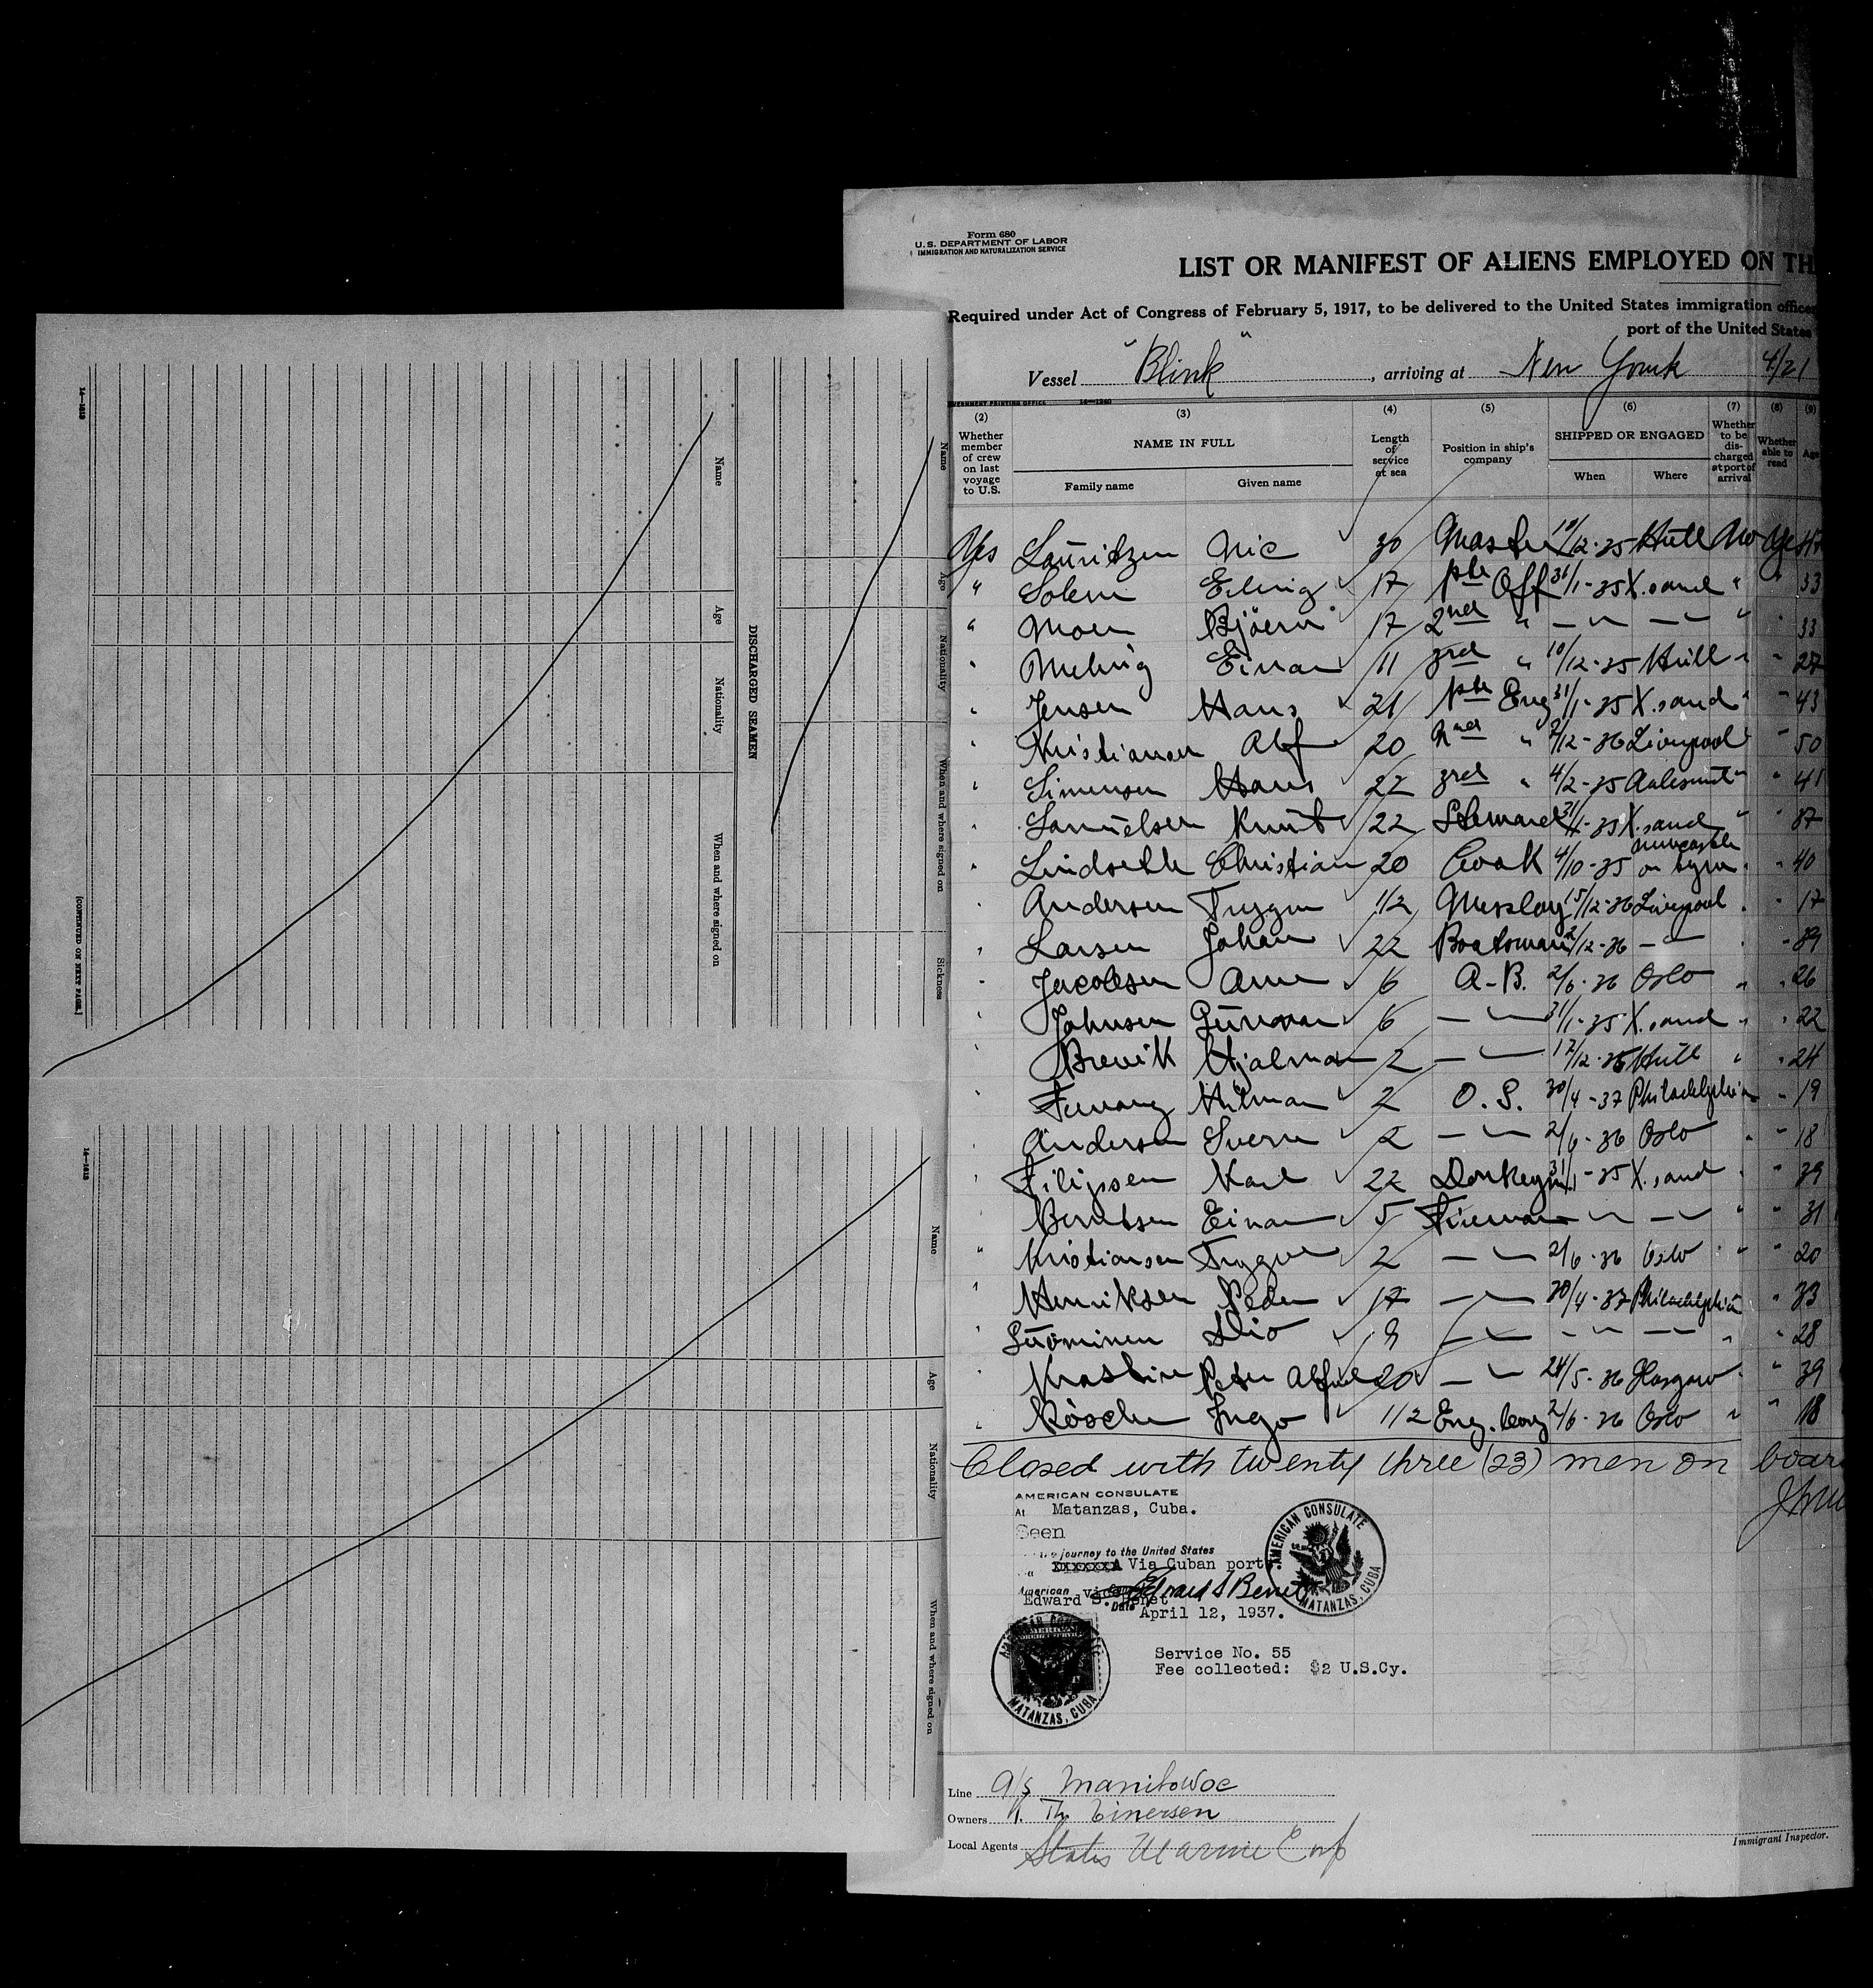 Form 680
U. S. DEPARTMENT OF LABOR
IMMIGRATION AND NATURALIZATION SERVICE
LIST OR MANIFEST OF ALIENS EMPLOYED ON TH
Required under Act of Congress of February 5, 1917, to be delivered to the United States immigration officer
port of the United States
Vessel "Blink", arriving at New Yourk 4/21
GOVERNMENT PRINTING OFFICE 14—1240
(2) (3) (4) (5) (6) (7) (8) (9)
Whether member of crew on last voyage to U.S.
NAME IN FULL
Family name Given name
Length of service at sea
Position in ship's company
SHIPPED OR ENGAGED
When Where
Whether to be discharged at port of arrival
Whether able to read
Age
Yes Lauritzen Nic 30 Master 10/12-35 Hull No Yes 47
" Solem Erling 17 1ste Off 31/1-35 X.sand " " 33
" Moen Björn 17 2nd " — — " " 33
" Einar 11 3rd " 10/12-35 Hull " " 27
" Jensen Hans 21 1ste Eng 31/1-35 X.sand " " 43
Kristiansen Alf 20 2nd " /12-36 Liverpool " 50
" Simensen Hans 22 3rd " 4/2-35 Aalesund " " 41
" Samuelsen Knut 22 Steward 31/1-35 X.sand " " 37
" Lindseth Christian 20 Cook 4/10-35 Newcastle on tyne " " 40
" Andersen Trygve 1/2 Messboy 15/12-36 Liverpool " " 17
" Larsen Johan 22 Boatsman 2/12-36 — — " " 39
" Jacobsen Arne 6 A-B. 2/6-36 Oslo " " 26
" Johnsen Gunnar 6 — — 31/1-35 X.sand " " 22
" Brevik Hjalmar 2 — — 12/12-36 Hull " " 24
" Hilmar 2 O. S. 30/4-37 Philadelphia " 19
" Andersen Sverre 2 — — 2/6-36 Oslo " " 18
" Filipsen Karl 22 Donkeym. 31/1-35 X.sand " " 39
" Berntsen Einar 5 Fireman — — " " 31
" Kristiansen Trygve 2 — — 2/6-36 Oslo " " 20
" Henriksen Peder 17 — — 30/4-37 Philadelphia " 33
" Suominen 9 — — — — " " 28
" Peter Alfred 20 — — 24/5-36 Glasgow " " 39
" Röscher Ingo 1 1/2 Eng. boy 2/6-36 Oslo " " 18
Closed with twenty three (23) men on boar
AMERICAN CONSULATE
At Matanzas, Cuba.
Seen
journey to the United States
Via Cuban port
American vice
Edward S. Benet
Date April 12, 1937.
AMERICAN CONSULATE
MATANZAS, CUBA
AMERICAN CONSULATE
MATANZAS, CUBA
Service No. 55
Fee collected: $2 U.S.Cy.
Line A/S Manitowoc
Owners Th. Einersen
Local Agents States Marine Corp
Immigrant Inspector.
Name
Age
Nationality
When and where signed on
Sickness
DISCHARGED SEAMEN
Name
Age
Nationality
When and where signed on
14—1613
[CONTINUED ON NEXT PAGE.]
Name
Age
Nationality
When and where signed on
14—1613